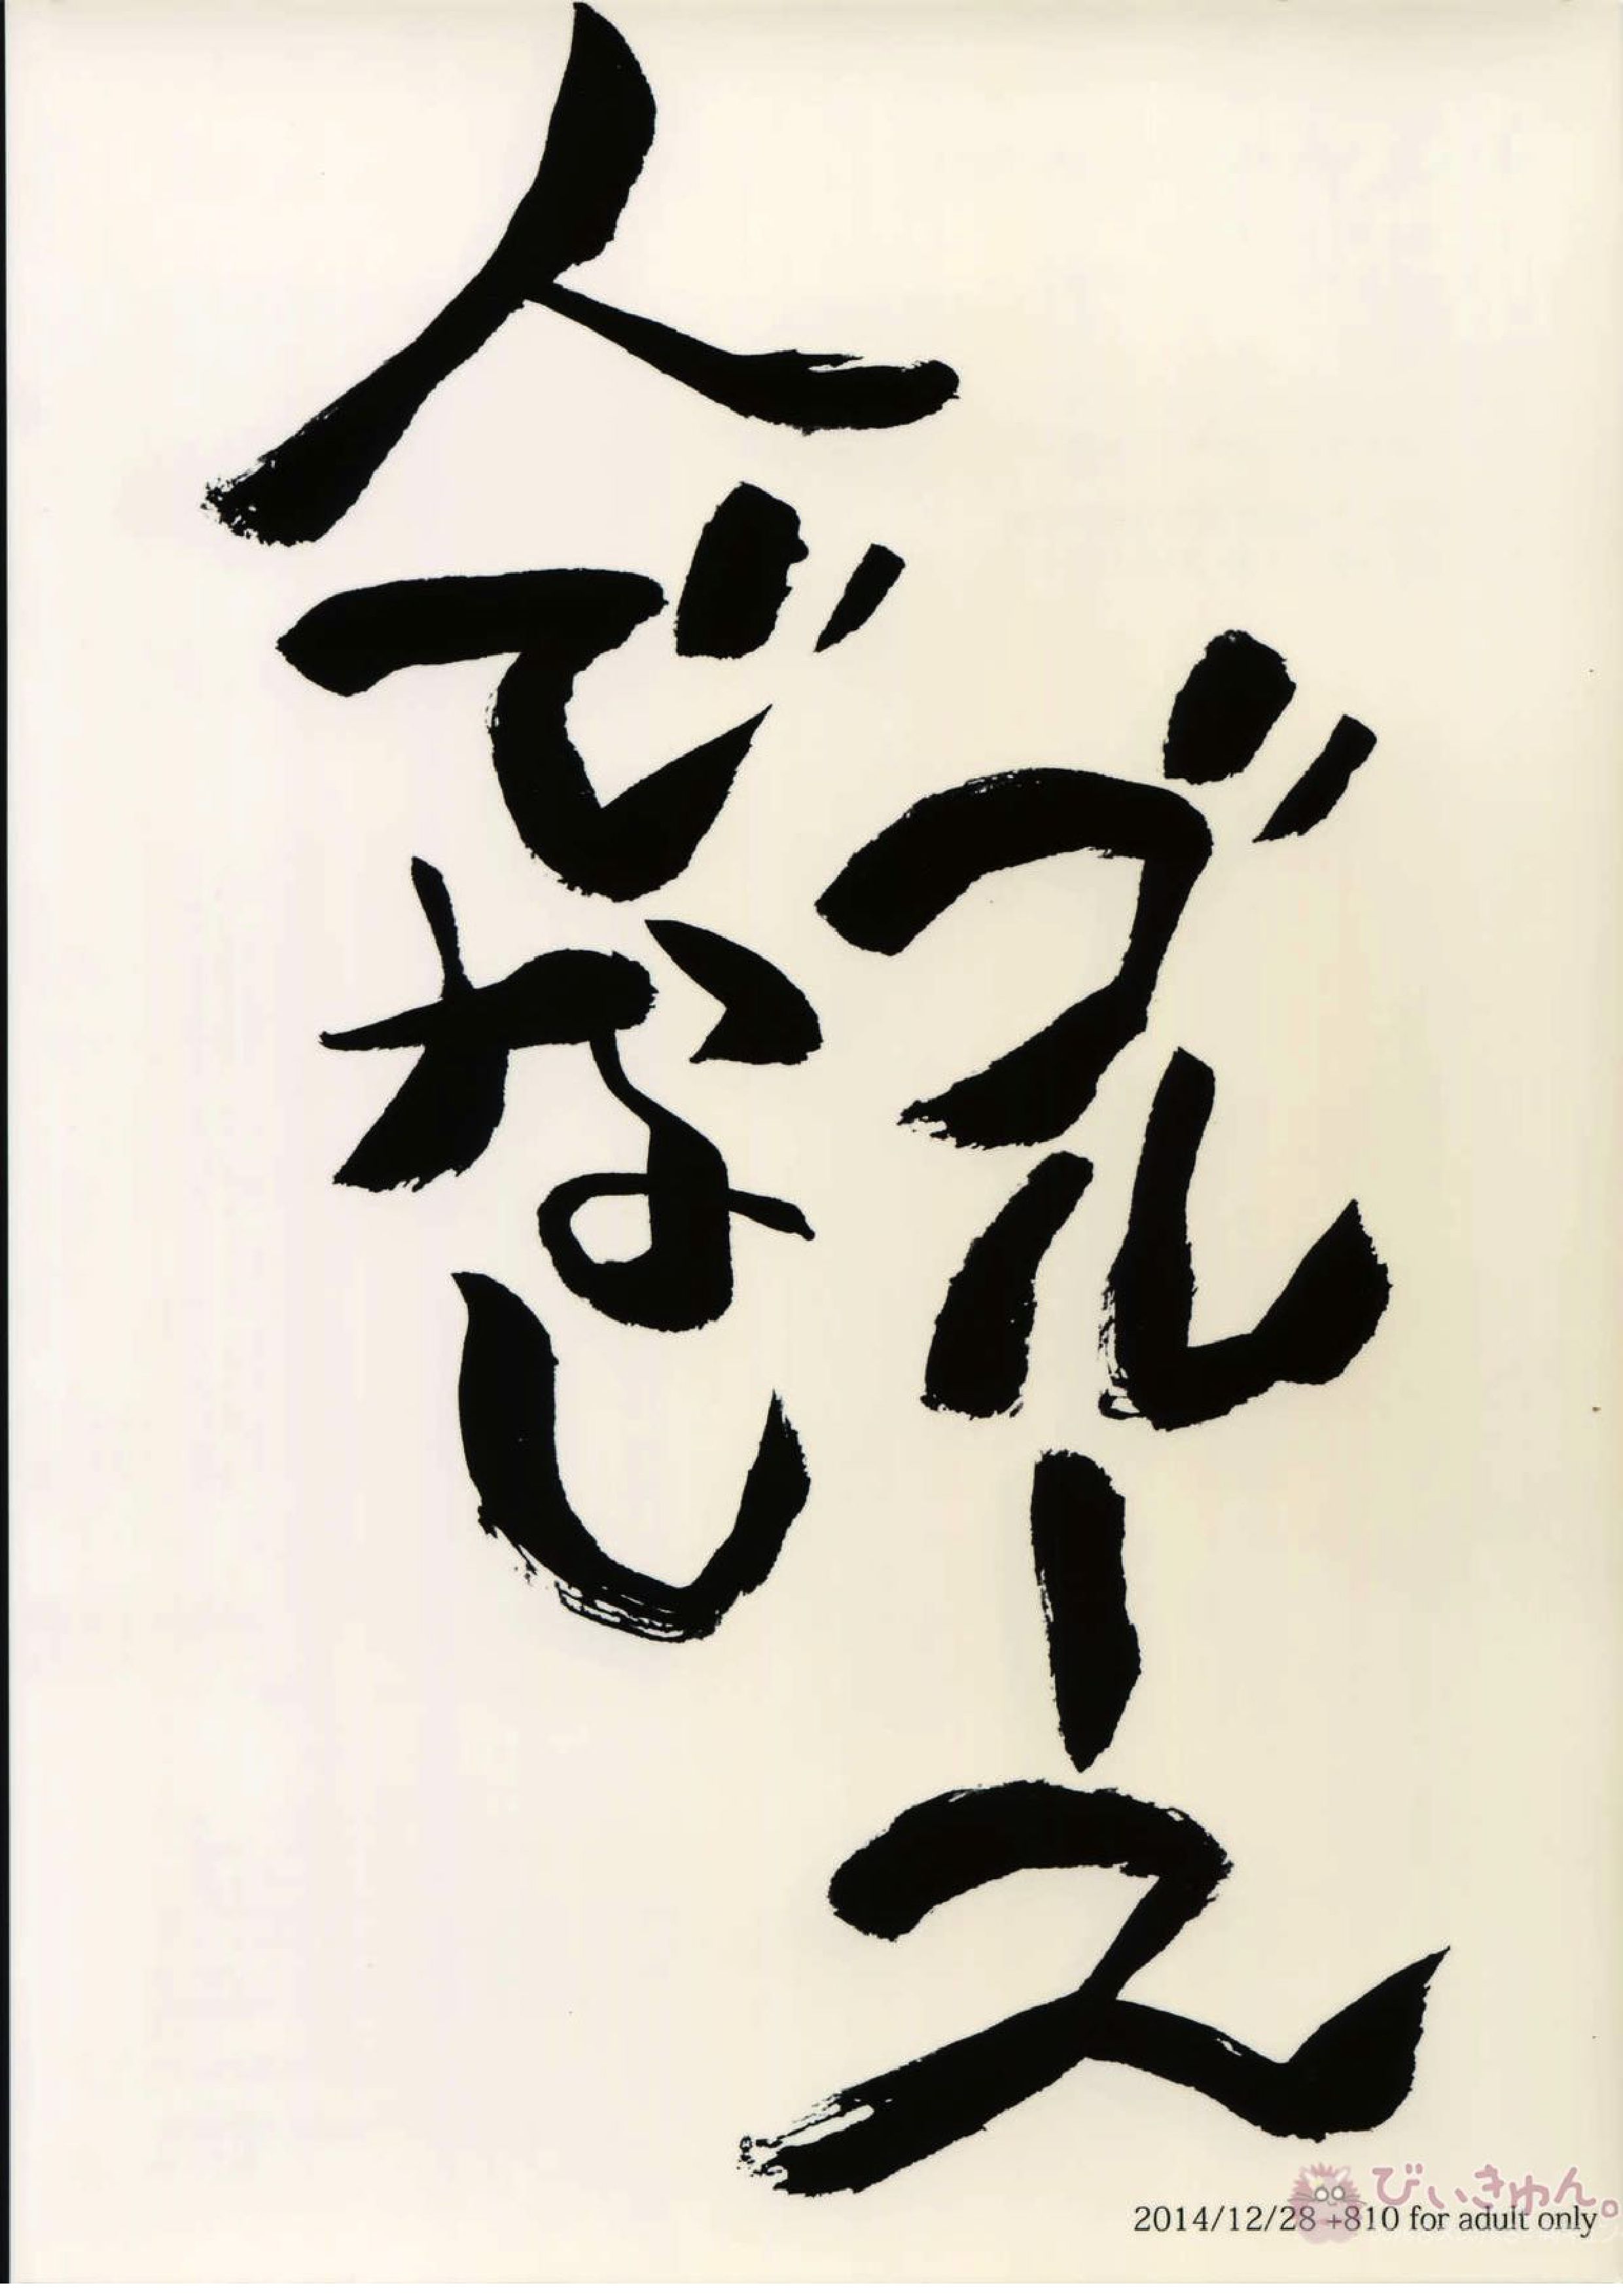 人でなし
ブルース
2014/12/28 +810 for adult only
びぃきゅん。